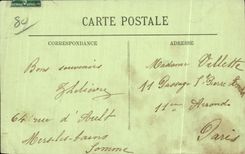 80
CARTE POSTALE
CORRESPONDANCE
ADRESSE
Bons souvenirs
64 rue d'Ault
Mers-les-bains
Somme
Madame Villette
11 Passage St Pierre
11ème Arrond
Paris